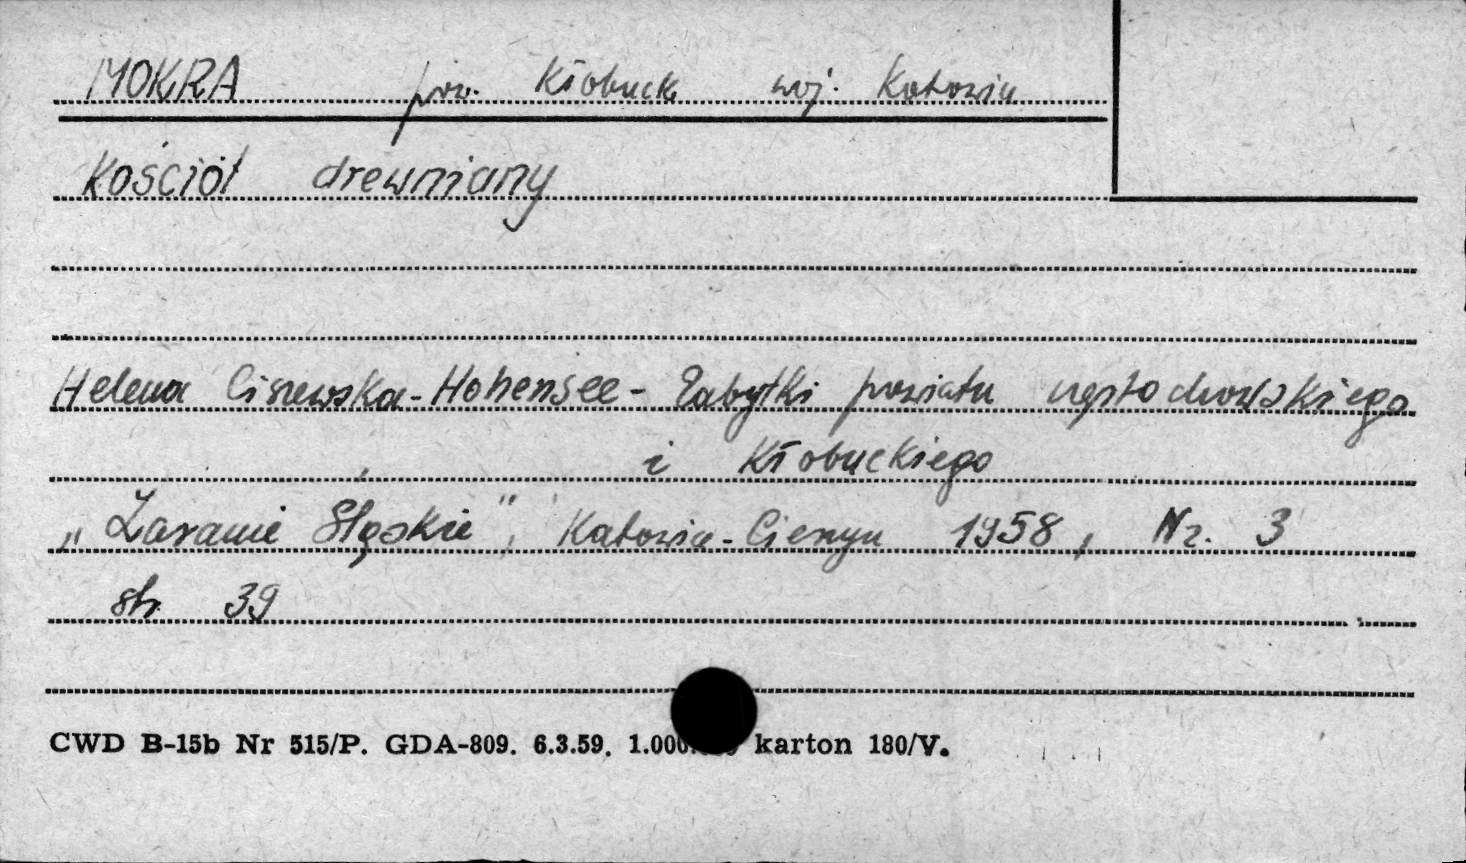 MOKRA pow. Kłobuck woj. Katowice
Kościół drewniany
Helena Ciszewska-Hohensee - Zabytki powiatu częstochowskiego
i Kłobuckiego
„Zaranie Śląskie", Katowice-Cieszyn 1958, Nr. 3
str 39
CWD B-15b Nr 515/P. GDA-809. 6.3.59. karton 180/V.